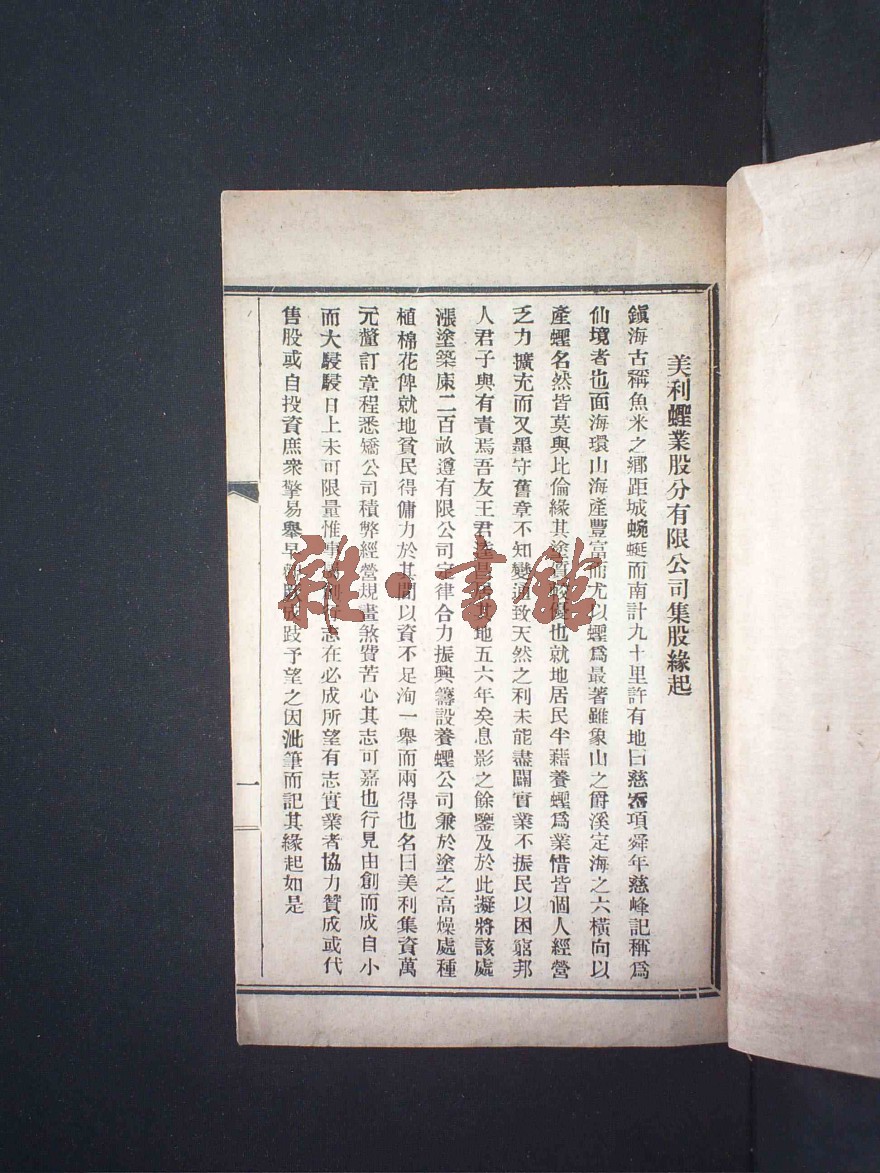 美利蟶業股分有限公司集股緣起
鎭海古稱魚米之鄕距城蜿蜒而南計九十里許有地曰慈嶴項舜年慈峰記稱爲
仙境者也面海環山海產豐富而尤以蟶爲最著雖象山之爵溪定海之六橫向以
產蟶名然皆莫與比倫緣其塗質較優也就地居民半藉養蟶爲業惜皆個人經營
乏力擴充而又墨守舊章不知變通致天然之利未能盡闢實業不振民以困窮邦
人君子與有責焉吾友王君昌居其地五六年矣息影之餘鑒及於此擬將該處
漲塗築康二百畝遵有限公司定律合力振興籌設養蟶公司兼於塗之高燥處種
植棉花俾就地貧民得傭力於其間以資不足洵一舉而兩得也名曰美利集資萬
元釐訂章程悉矯公司積弊經營規畫煞費苦心其志可嘉也行見由創而成自小
而大駸駸日上未可限量惟事志在必成所望有志實業者協力贊成或代
售股或自投資庶衆擎易舉早成跂予望之因泚筆而記其緣起如是
一
雜·書館